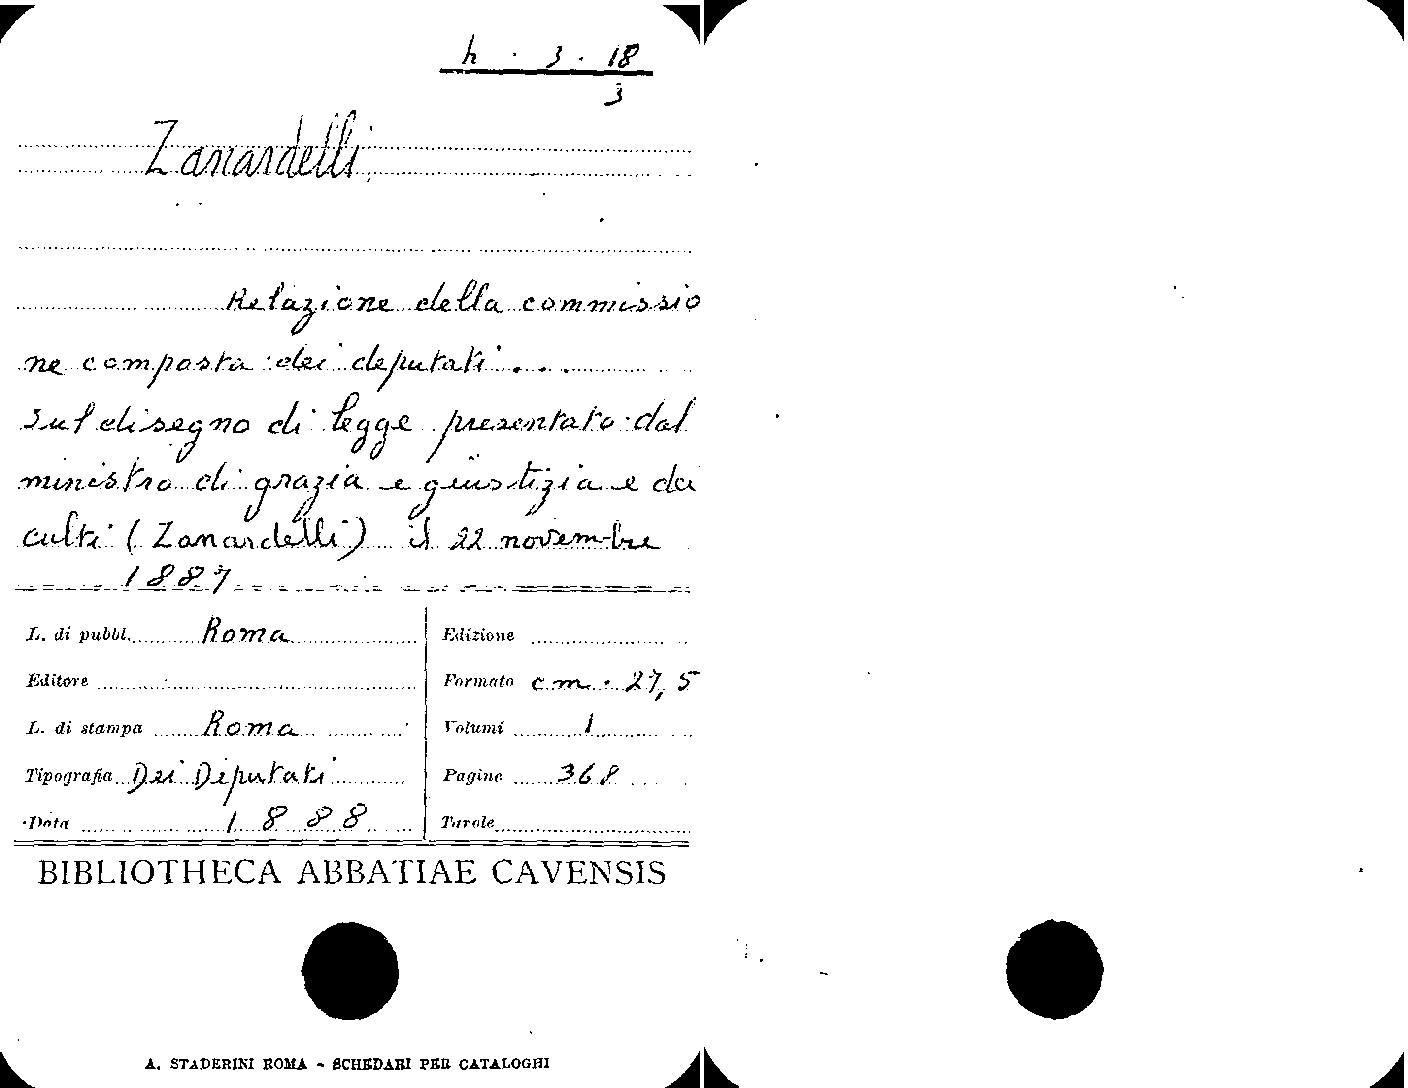 h · 3 · 18
3
Zanardelli
Relazione della commissio
ne composta dei deputati . . .
sul disegno di legge presentato dal
ministro di grazia e giustizia e dei
culti (Zanardelli) il 22 novembre
1887
L. di pubbl. Roma
Edizione
Editore
Formato cm. 27,5
L. di stampa Roma
Volumi 1
Tipografia Dei Deputati
Pagine 368
Data 1888
Tavole
BIBLIOTHECA ABBATIAE CAVENSIS
A. STADERINI ROMA - SCHEDARI PER CATALOGHI